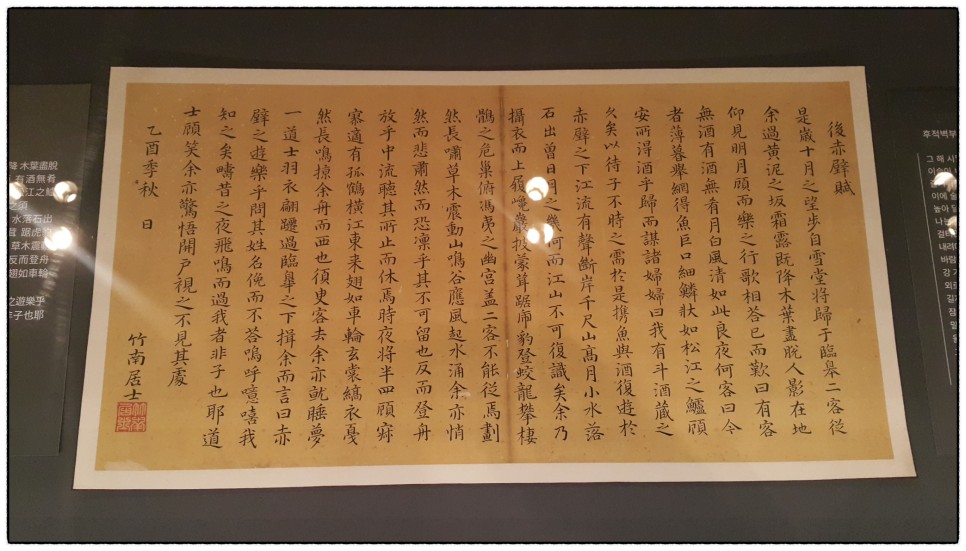 後赤壁賦
是歲十月之望步自雪堂將歸于臨皐二客從
余過黃泥之坂霜露既降木葉盡脫人影在地
仰見明月顧而樂之行歌相答已而歎曰有客
無酒有酒無肴月白風清如此良夜何客曰今
者薄暮擧網得魚巨口細鱗狀如松江之鱸顧
安所得酒乎歸而謀諸婦婦曰我有斗酒藏之
久矣以待子不時之需於是携魚與酒復遊於
赤壁之下江流有聲斷岸千尺山高月小水落
石出曾日月之幾何而江山不可復識矣余乃
攝衣而上履巉巖披蒙茸踞虎豹登蛟龍攀棲
鶻之危巢俯馮夷之幽宮盖二客不能從焉劃
然長嘯草木震動山鳴谷應風起水涌余亦悄
然而悲肅然而恐凜乎其不可留也反而登舟
放乎中流聽其所止而休焉時夜將半四顧寂
寥適有孤鶴橫江東来翅如車輪玄裳縞衣戛
然長鳴掠余舟而西也須臾客去余亦就睡夢
一道士羽衣翩躚過臨皐之下揖余而言曰赤
壁之遊樂乎問其姓名俛而不答嗚呼噫嘻我
知之矣疇昔之夜飛鳴而過我者非子也耶道
士顧笑余亦驚悟開戶視之不見其處
乙酉季秋 日
竹南居士
후적벽부
그 해
木葉盡脫
有酒無肴
水落石出
反而登舟
翅如車輪
之遊樂乎
子也耶